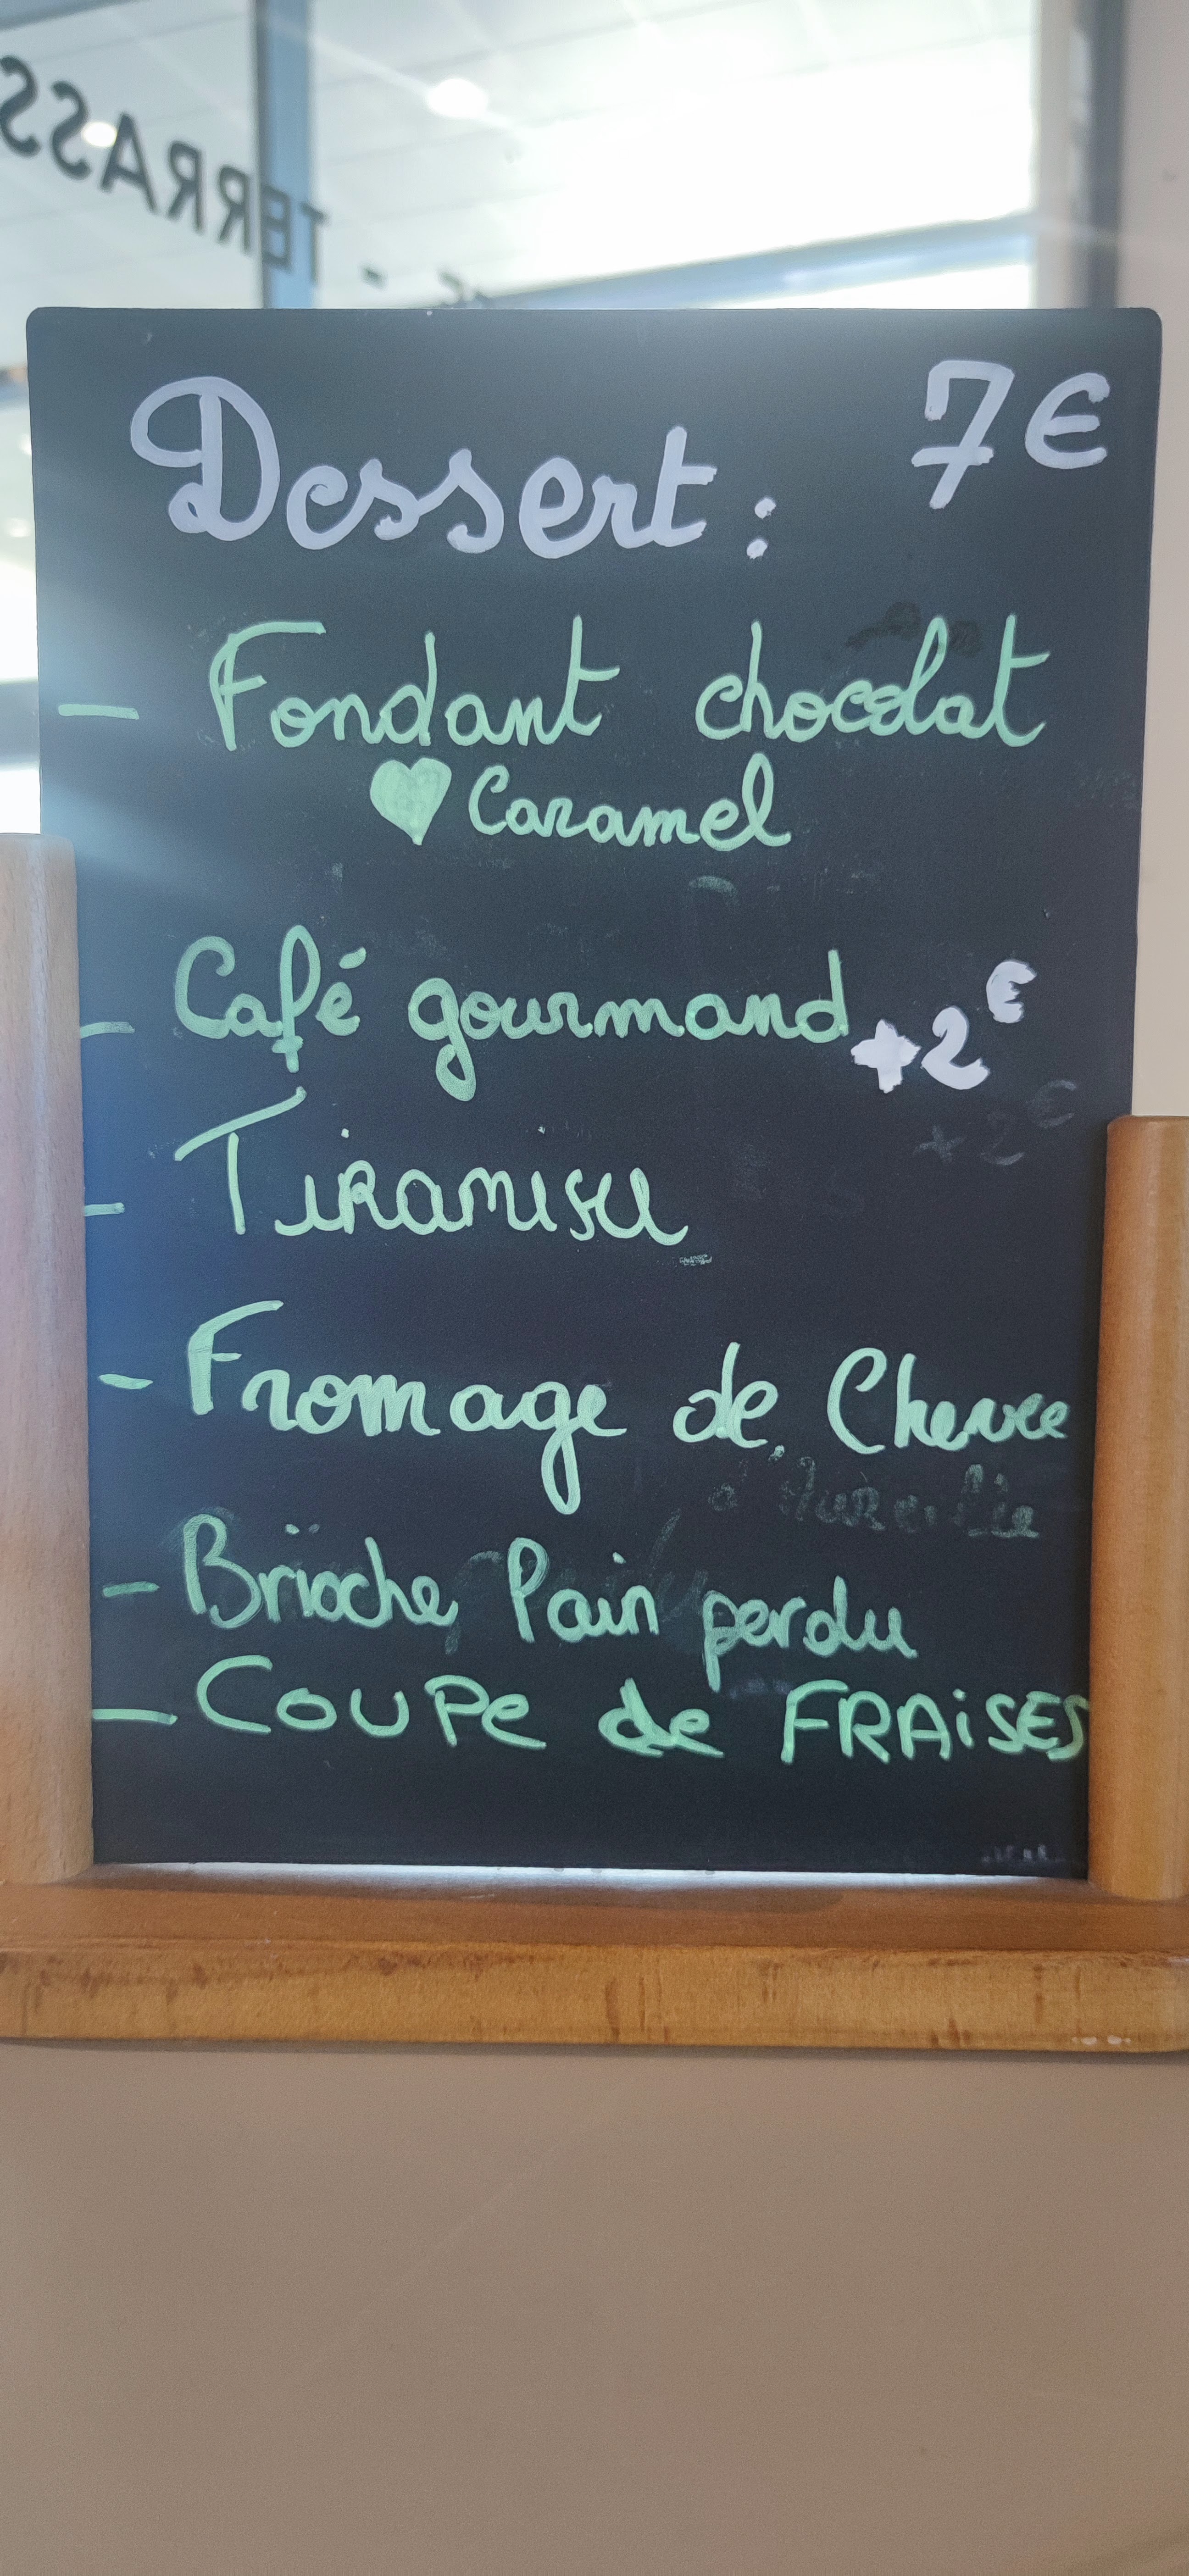 TERRASS
Dessert : 7€
- Fondant chocolat
♥ Caramel
- Café gourmand +2€
+2€
- Tiramisu
- Fromage de Chevre
- Brioche Pain perdu
- Coupe de FRAiSES